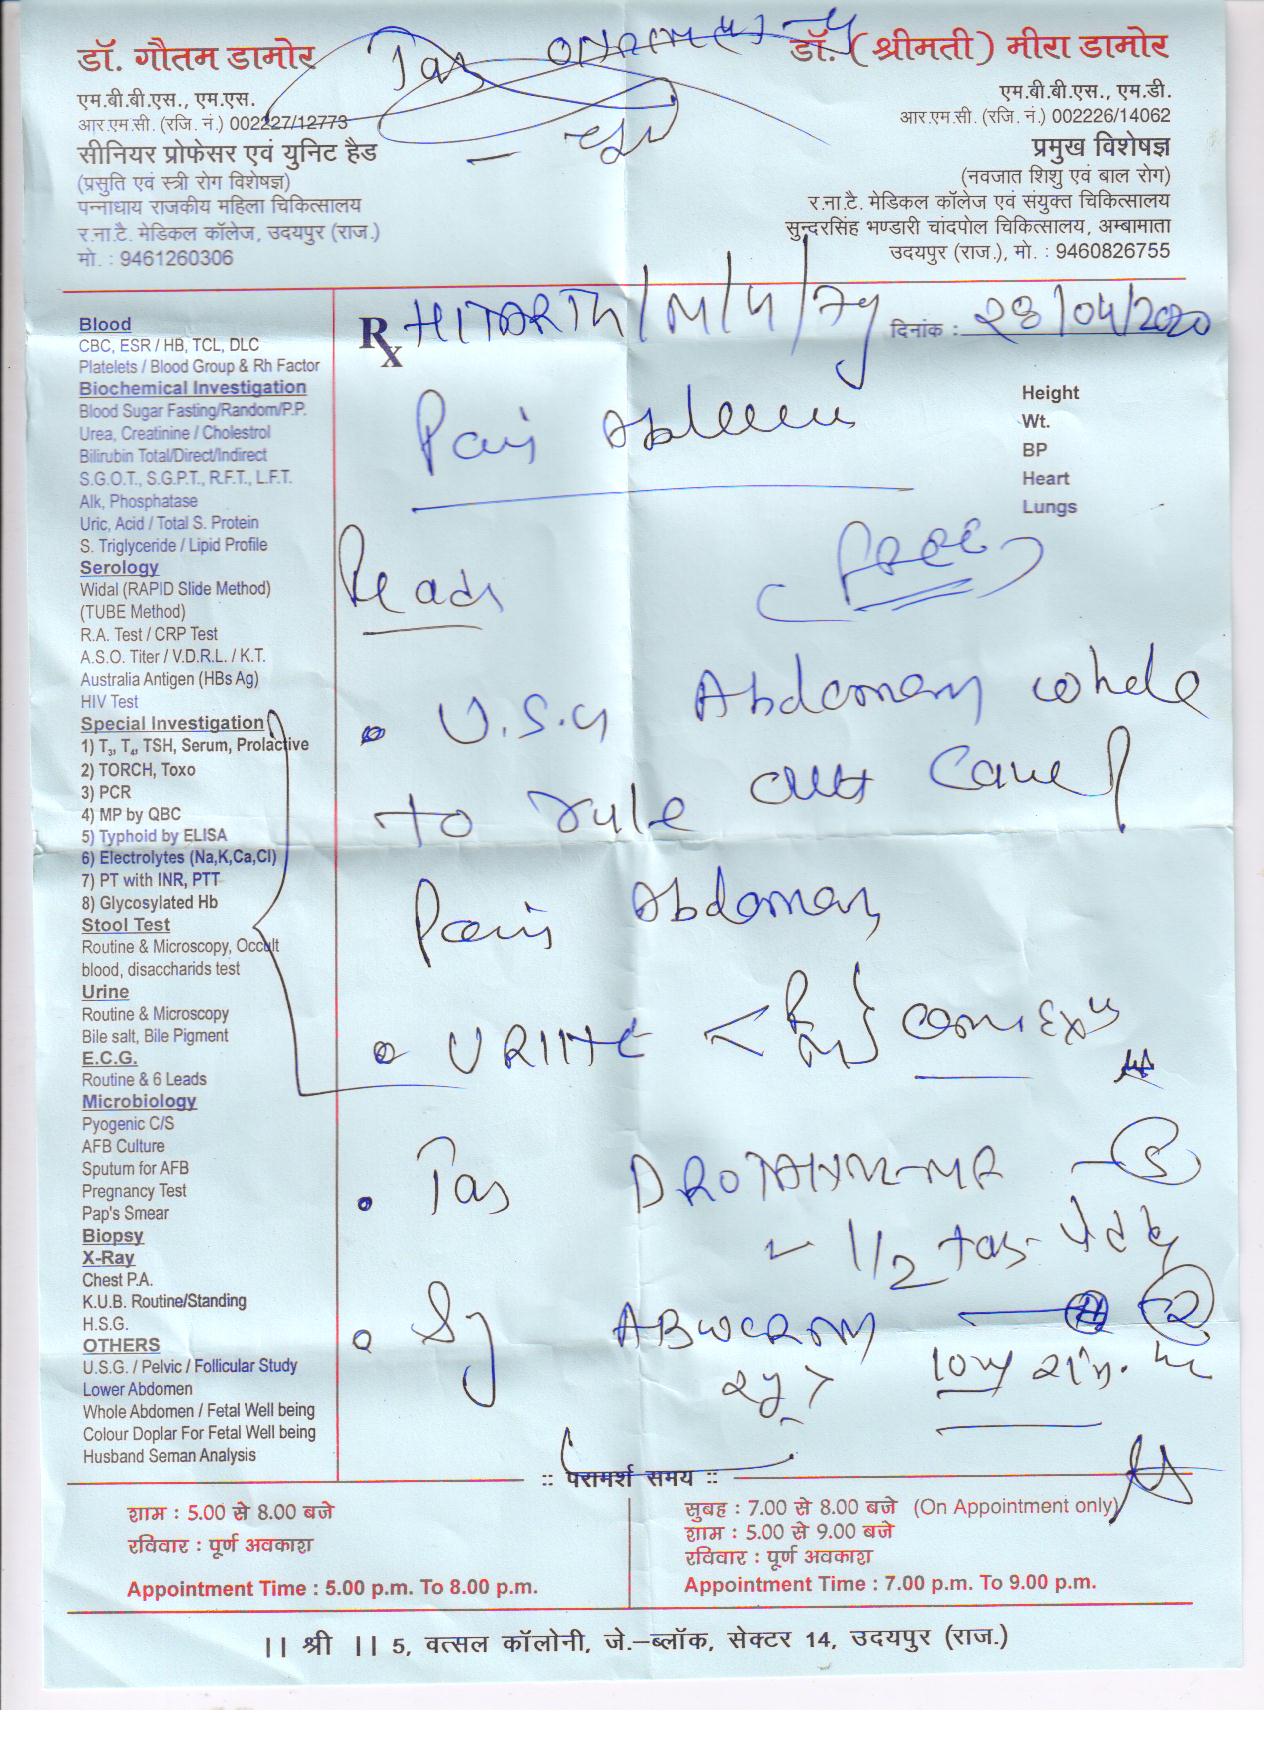 डॉ. गौतम डामोर
एम.बी.बी.एस., एम.एस.
आर.एम.सी. (रजि. नं.) 002227/12773
सीनियर प्रोफेसर एवं युनिट हैड
(प्रसुति एवं स्त्री रोग विशेषज्ञ)
पन्नाधाय राजकीय महिला चिकित्सालय
र.ना.टै. मेडिकल कॉलेज, उदयपुर (राज.)
मो. : 9461260306
डॉ. (श्रीमती) मीरा डामोर
एम.बी.बी.एस., एम.डी.
आर.एम.सी. (रजि. नं.) 002226/14062
प्रमुख विशेषज्ञ
(नवजात शिशु एवं बाल रोग)
र.ना.टै. मेडिकल कॉलेज एवं संयुक्त चिकित्सालय
सुन्दरसिंह भण्डारी चांदपोल चिकित्सालय, अम्बामाता
उदयपुर (राज.), मो. : 9460826755
Blood
CBC, ESR / HB, TCL, DLC
Platelets / Blood Group & Rh Factor
Biochemical Investigation
Blood Sugar Fasting/Random/P.P.
Urea, Creatinine / Cholestrol
Bilirubin Total/Direct/Indirect
S.G.O.T., S.G.P.T., R.F.T., L.F.T.
Alk, Phosphatase
Uric, Acid / Total S. Protein
S. Triglyceride / Lipid Profile
Serology
Widal (RAPID Slide Method)
(TUBE Method)
R.A. Test / CRP Test
A.S.O. Titer / V.D.R.L. / K.T.
Australia Antigen (HBs Ag)
HIV Test
Special Investigation
1) T3, T4, TSH, Serum, Prolactive
2) TORCH, Toxo
3) PCR
4) MP by QBC
5) Typhoid by ELISA
6) Electrolytes (Na,K,Ca,Cl)
7) PT with INR, PTT
8) Glycosylated Hb
Stool Test
Routine & Microscopy, Occult
blood, disaccharids test
Urine
Routine & Microscopy
Bile salt, Bile Pigment
E.C.G.
Routine & 6 Leads
Microbiology
Pyogenic C/S
AFB Culture
Sputum for AFB
Pregnancy Test
Pap's Smear
Biopsy
X-Ray
Chest P.A.
K.U.B. Routine/Standing
H.S.G.
OTHERS
U.S.G. / Pelvic / Follicular Study
Lower Abdomen
Whole Abdomen / Fetal Well being
Colour Doplar For Fetal Well being
Husband Seman Analysis
Rx HITARTH/M/4/7y
दिनांक : 28/04/2020
Height
Wt.
BP
Heart
Lungs
Pain Abdomen
U.S.G Abdomen whole
to rule out cause
Pain Abdomen
URINE
Tab DROTAVIM-MF
1/2 tab
Sy
:: परामर्श समय ::
शाम : 5.00 से 8.00 बजे
रविवार : पूर्ण अवकाश
Appointment Time : 5.00 p.m. To 8.00 p.m.
सुबह : 7.00 से 8.00 बजे (On Appointment only)
शाम : 5.00 से 9.00 बजे
रविवार : पूर्ण अवकाश
Appointment Time : 7.00 p.m. To 9.00 p.m.
|| श्री || 5, वत्सल कॉलोनी, जे.–ब्लॉक, सेक्टर 14, उदयपुर (राज.)